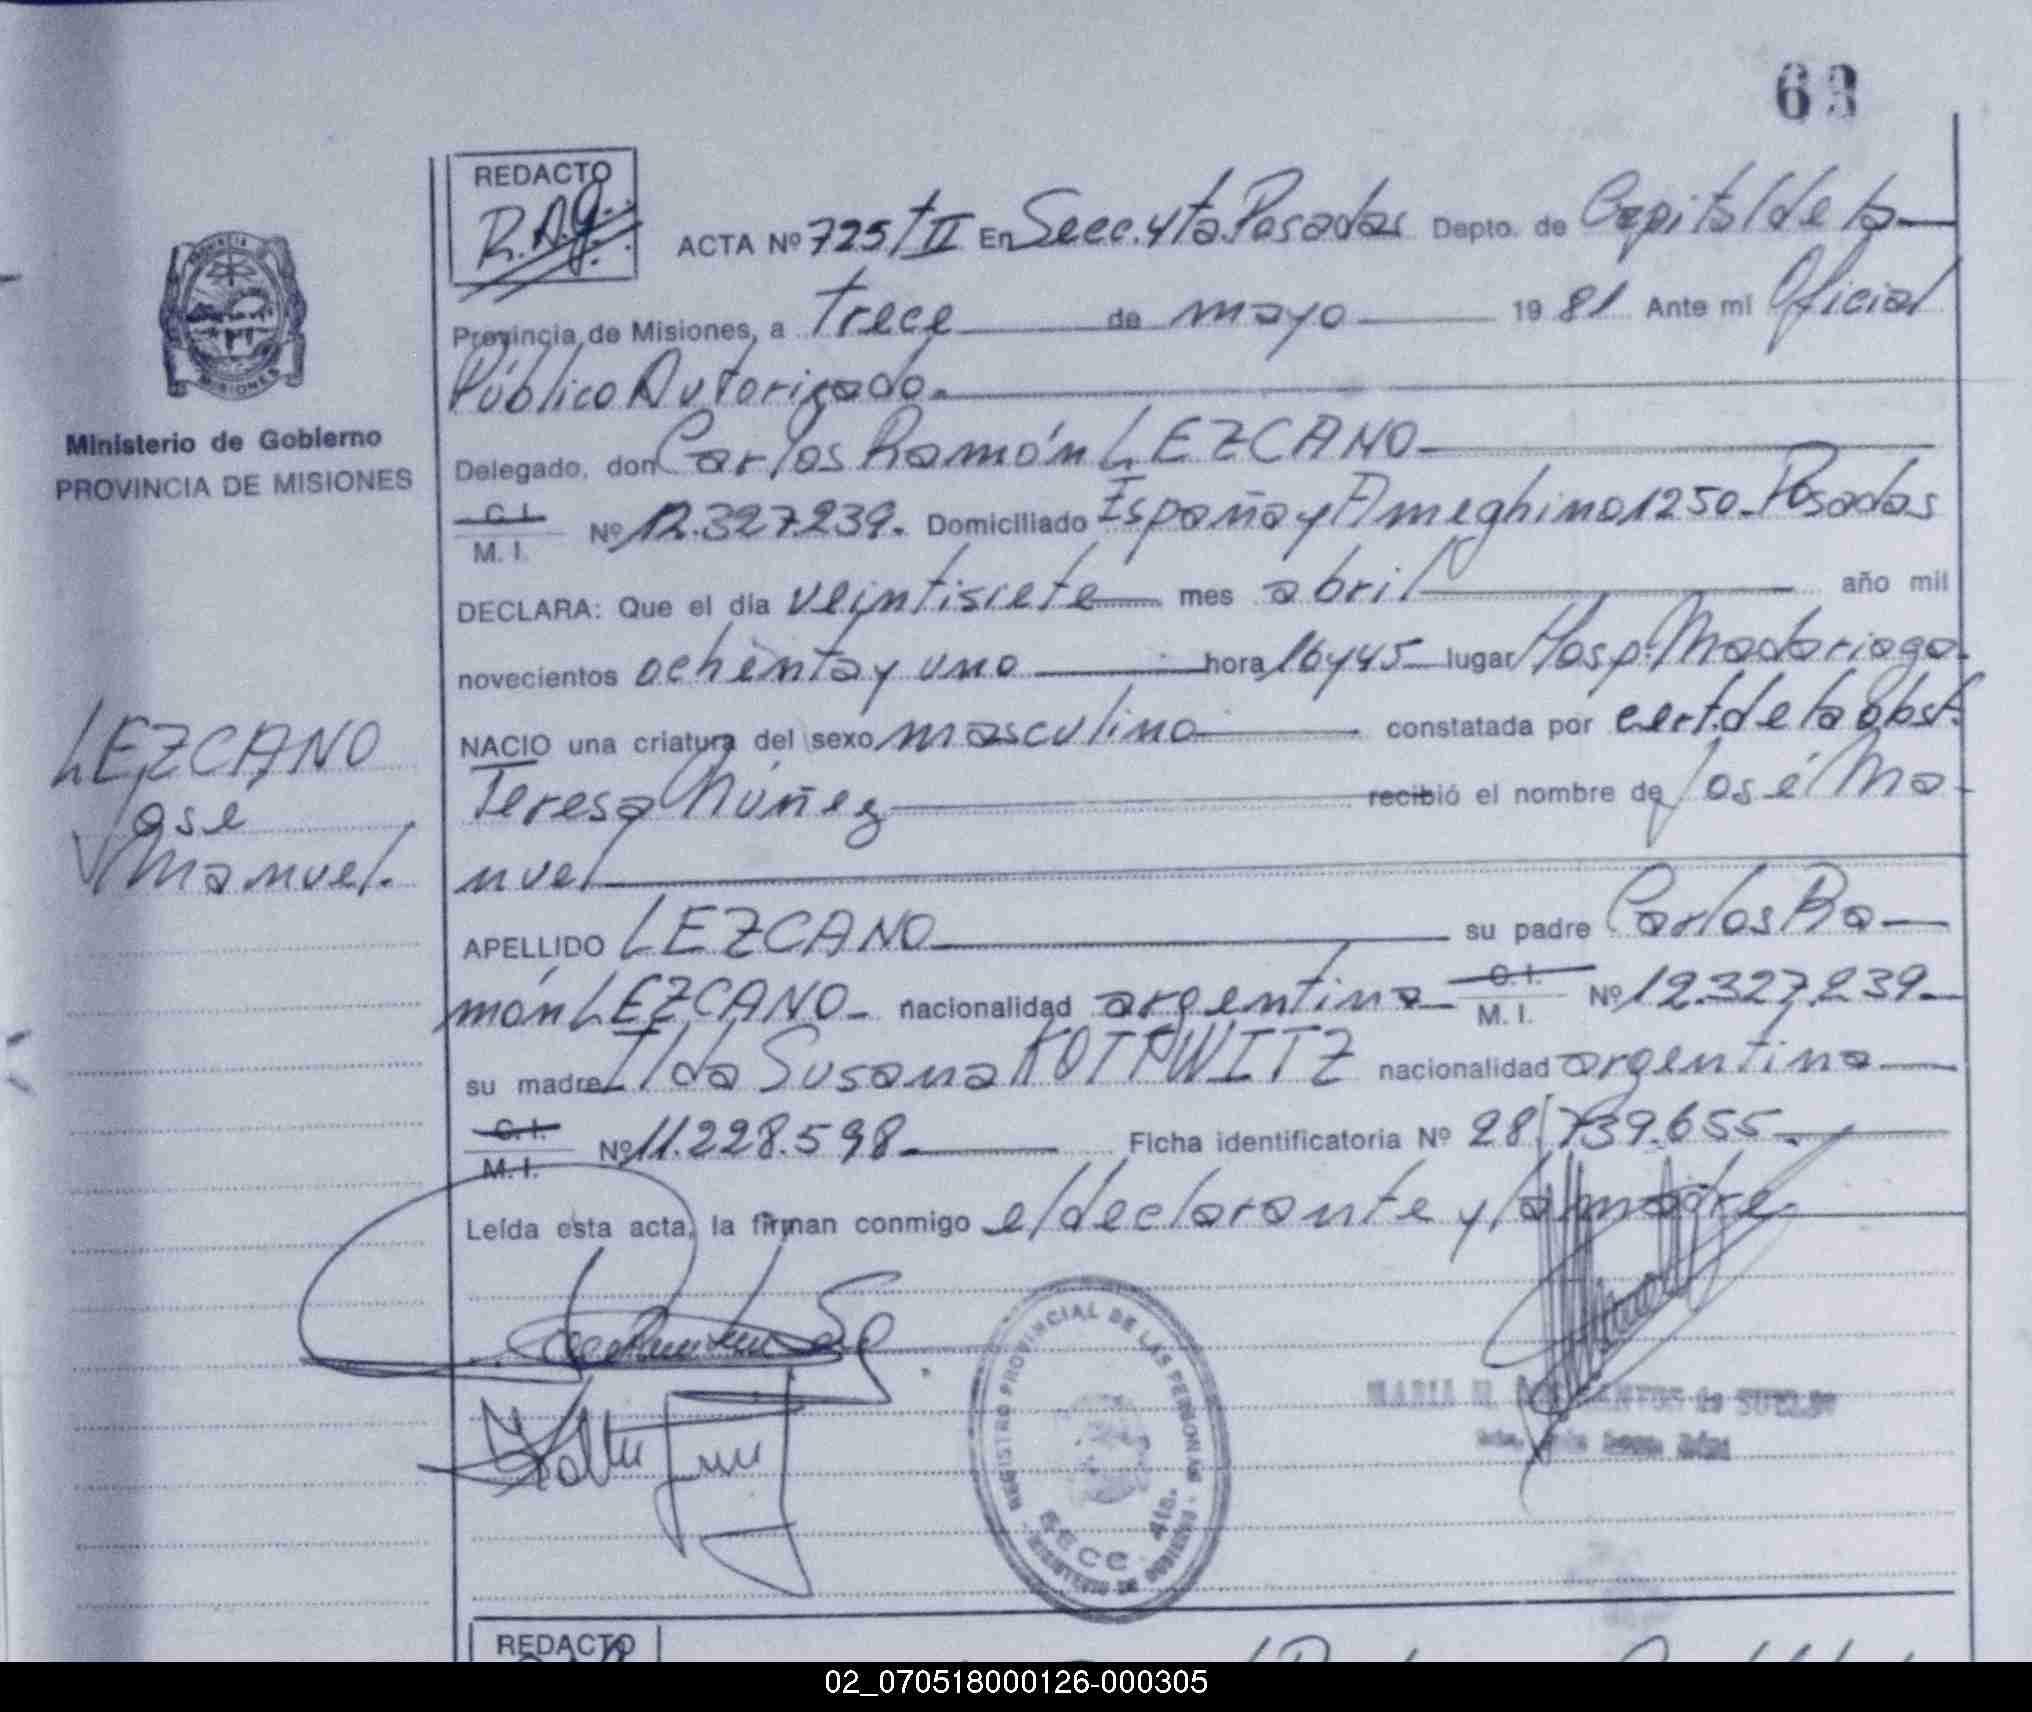 63
REDACTO
R.A.G.
ACTA Nº 725 t II En Secc. 4ta. Posadas Depto. de Capital de la
Provincia de Misiones, a trece de mayo 19 81 Ante mí Oficial
Público Autorizado.
Delegado, don Carlos Ramón LEZCANO
C. I.
M. I. Nº 12.327.239. Domiciliado España y Ameghino 1250 - Posadas
DECLARA: Que el día veintisiete mes abril año mil
novecientos ochenta y uno hora 16 y 45 lugar Hosp. Madariaga.
NACIO una criatura del sexo masculino constatada por cert. de la obst.
Teresa Núñez recibió el nombre de José Ma-
nuel
APELLIDO LEZCANO su padre Carlos Ra-
món LEZCANO - nacionalidad argentina C. I. M. I. Nº 12.327.239.
su madre Ilda Susana KOTTWITZ nacionalidad argentina
C. I.
M. I. Nº 11.228.598. Ficha identificatoria Nº 28.739.655.
Leída esta acta, la firman conmigo el declarante y la madre.
PROVINCIA
MISIONES
Ministerio de Gobierno
PROVINCIA DE MISIONES
LEZCANO
José
Manuel.
REGISTRO PROVINCIAL DE LAS PERSONAS
SECC. 4ta.
MINISTERIO DE GOBIERNO
MARIA
REDACTO
02_070518000126-000305